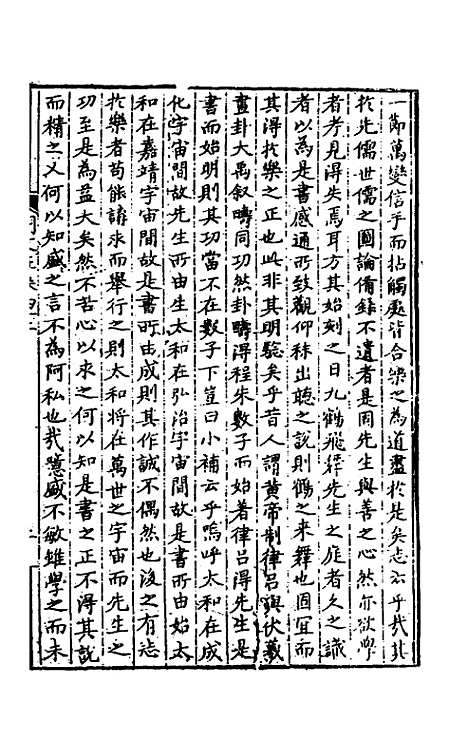 一節萬變信乎而拈觸處皆合樂之為道盡於是矣志云乎哉其
於先儒世儒之圖論備錄不遺者是固先生與善之心然亦欲學
者考見得失焉耳方其始刻之日九鶴飛舞先生之庭者久之識
者以為是書感通所致觀仰秣出聽之說則鶴之來舞也固宜而
其得於樂之正也此非其明驗矣乎昔人謂黃帝制律呂與伏羲
畫卦大禹敘疇同功然卦疇得程朱數子而始著律呂得先生是
書而始明則其功當不在數子下豈曰小補云乎嗚呼太和在成
化宇宙間故先生所由生太和在弘治宇宙間故是書所由始太
和在嘉靖宇宙間故是書所由成則其作誠不偶然也後之有志
於樂者苟能講求而舉行之則太和將在萬世之宇宙而先生之
功至是為益大矣然不苦心以求之何以知是書之正不得其說
而精之又何以知盛之言不為阿私也哉隱盛不敏雖學之而未